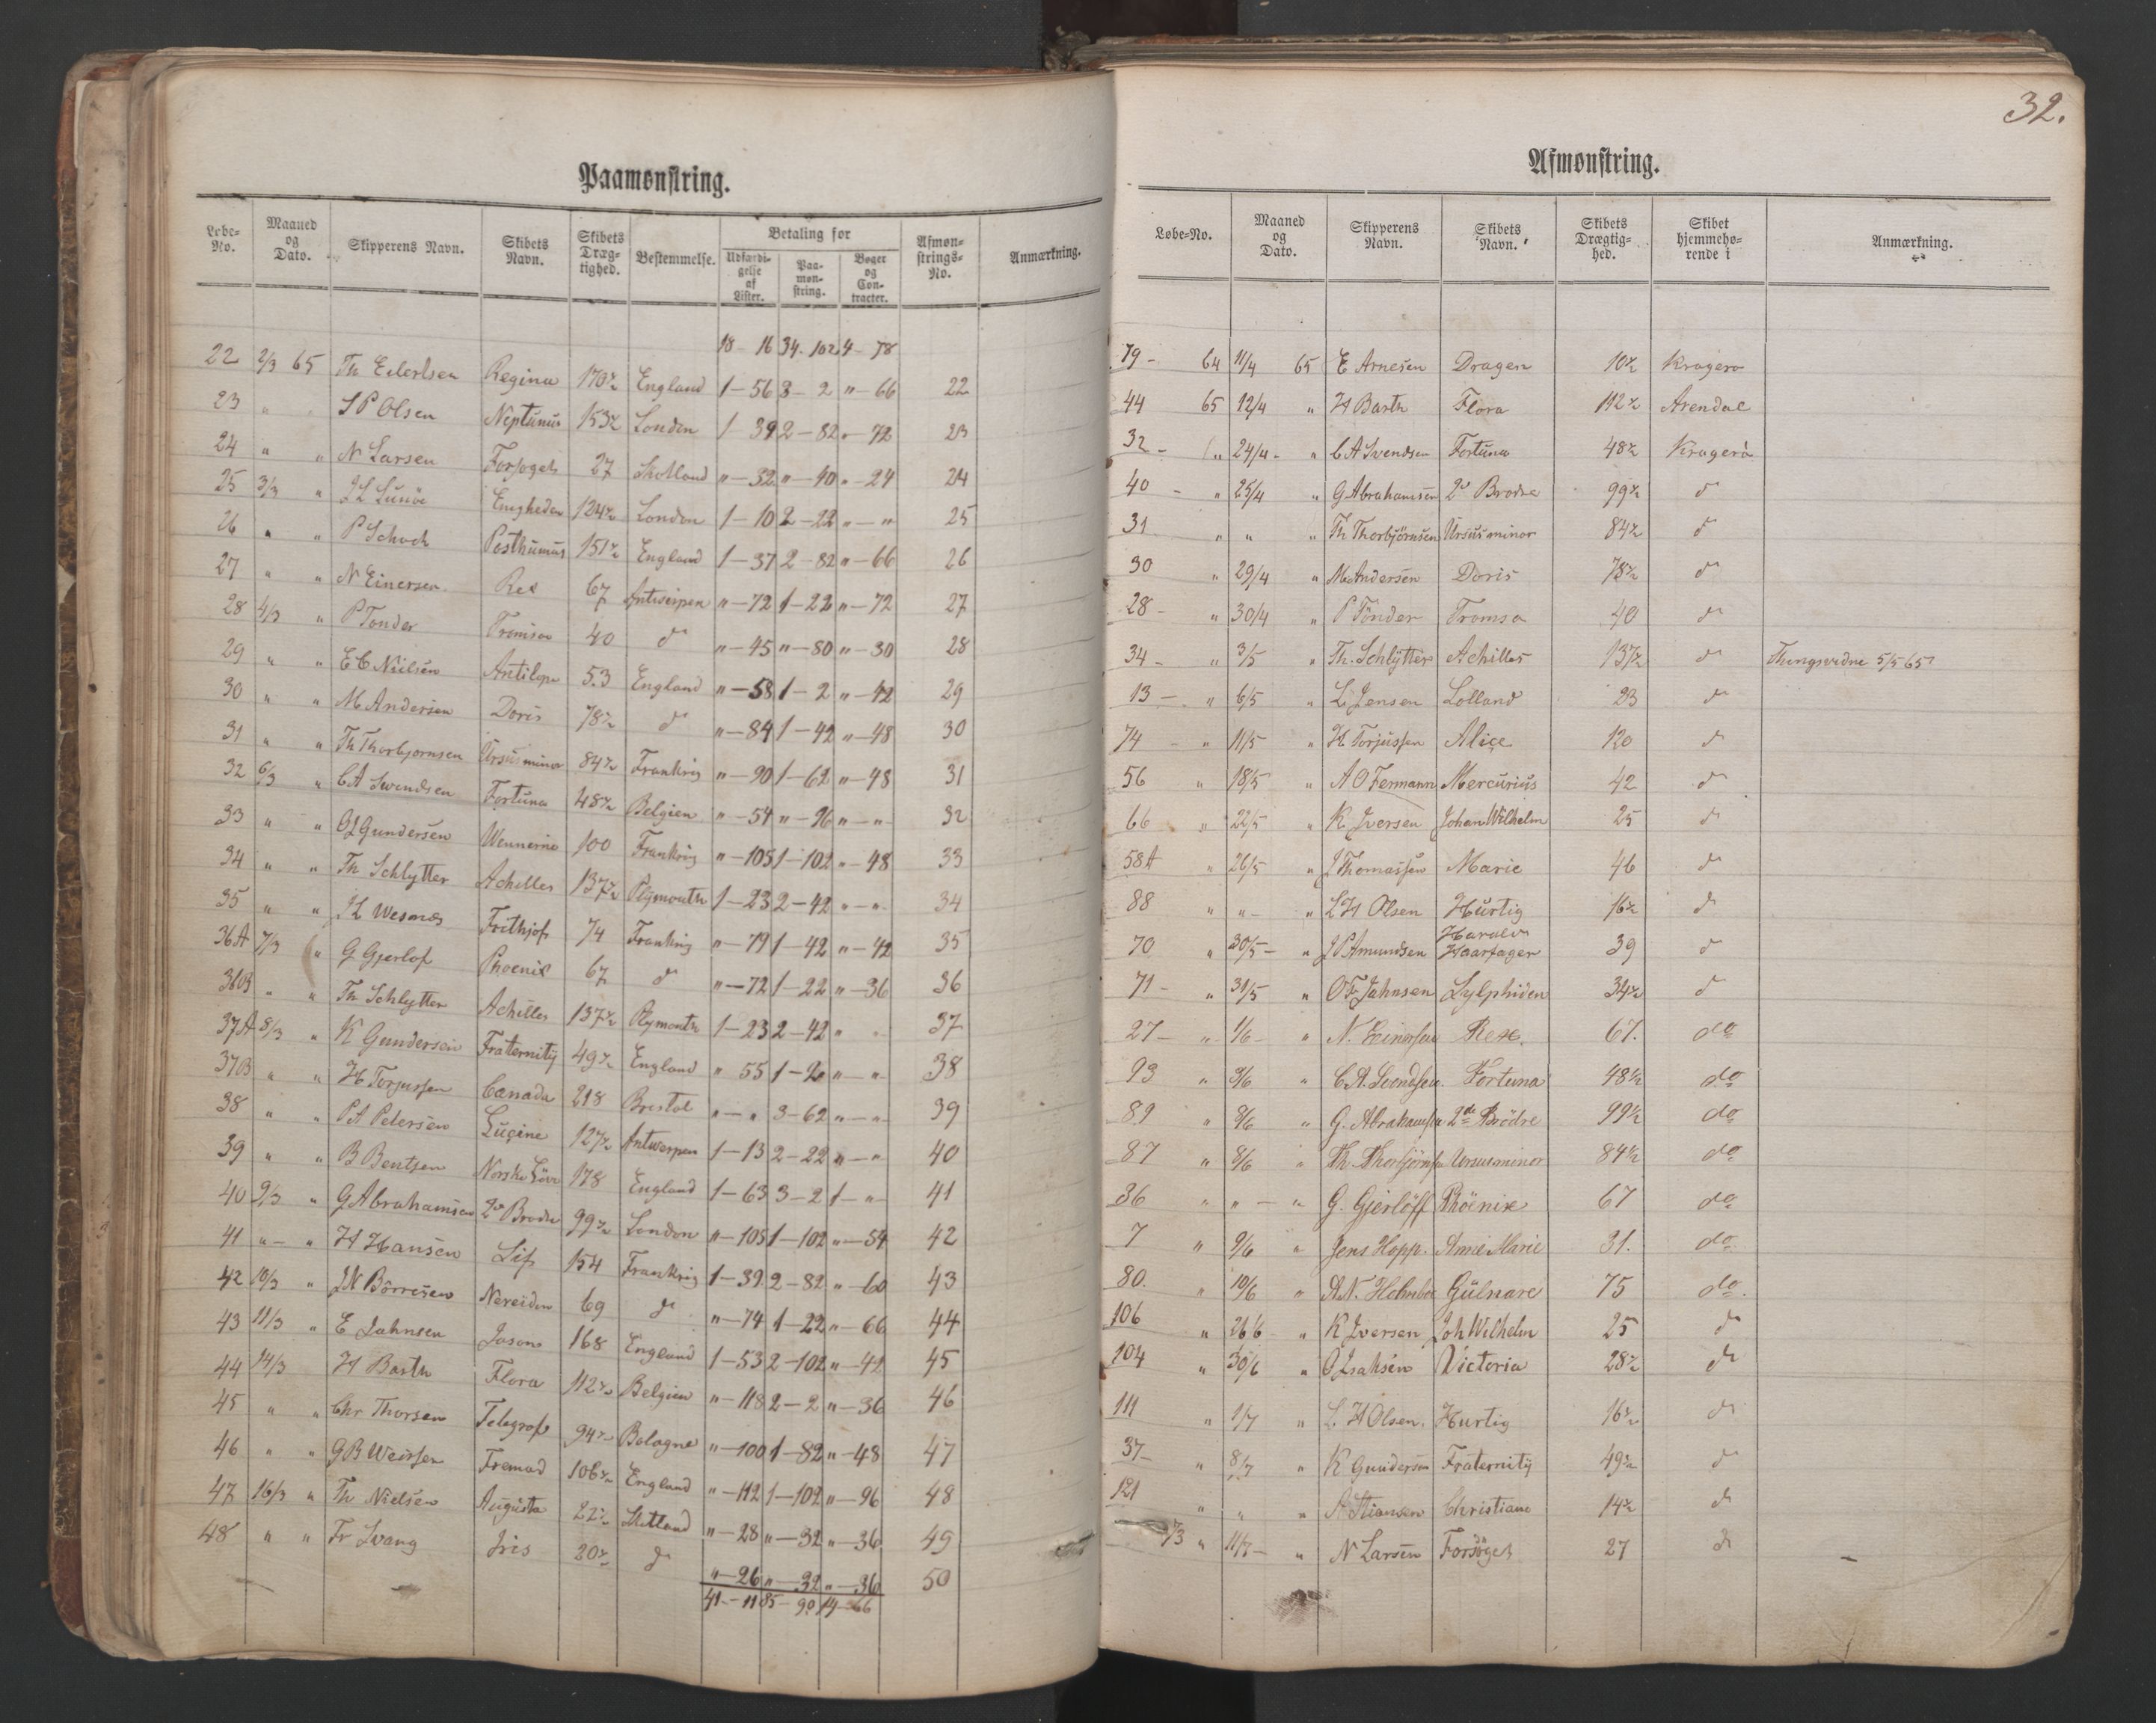 Paamønstring.
Løbe-No. Maaned og Dato. Skipperens Navn. Skibets Navn. Skibets Dræg-tighed. Bestemmelse. Betaling for Udfærdi-gelse af Lister. Paa-møn-string. Bøger og Con-tracter. Afmøn-strings-No. Anmærkning.
18 - 16 34 - 102 4 - 78
22 2/3 65 Th Eilertsen Regina 170½ England 1 - 56 3 - 2 " - 66 22
23 " " S P Olsen Neptunus 153½ London 1 - 39 2 - 82 " - 72 23
24 " " N Larsen Forsøget 27 Skotland " - 32 " - 40 " - 24 24
25 3/3 " Enigheden 124½ London 1 - 10 2 - 22 " - " 25
26 " " P Schoch Posthumus 151½ England 1 - 37 2 - 82 " - 66 26
27 " " N Einersen Rex 67 Antwerpen " - 72 1 - 22 " - 72 27
28 4/3 " P Tønder Tromsøe 40 do " - 45 " - 80 " - 30 28
29 " " E C Nielsen Antilope 53 England " - 58 1 - 2 " - 42 29
30 " " M Andersen Doris 78½ do " - 84 1 - 42 " - 48 30
31 " " Th Thorbjørnsen Ursus minor 84½ Frankrig " - 90 1 - 62 " - 48 31
32 6/3 " C A Svendsen Fortuna 48½ Belgien " - 54 " - 96 " - " 32
33 " " O J Gundersen Wennerne 100 Frankrig " - 105 1 - 102 " - 48 33
34 " " Th Schlytter Achilles 137½ Plymouth 1 - 23 2 - 42 " - " 34
35 " " Wesmas Frithjof 74 Frankrig " - 79 1 - 42 " - 42 35
36A 7/3 " G Gjerløf Phoenix 67 do " - 72 1 - 22 " - 36 36
36B " " Th Schlytter Achilles 137½ Plymouth 1 - 23 2 - 42 " " 37
37A 8/3 " K Gundersen Fraternity 49½ England " 55 1 - 2 " - " 38
37B " " H Torjussen Canada 218 Bristol " - " 3 - 62 " - " 39
38 " " P A Petersen Lucine 127½ Antwerpen 1 - 13 2 - 22 " - " 40
39 " " B Bentsen Norske Løve 178 England 1 - 63 3 - 2 1 - " 41
40 9/3 " G Abrahamsen 2de Brødre 99½ London " - 105 1 - 102 " - 54 42
41 " - " H Hansen Lif 154 Frankrig 1 - 39 2 - 82 " - 60 43
42 10/3 " J N Börresen Nereiden 69 do " - 74 1 - 22 " - 66 44
43 11/3 " E Jahnsen Jason 168 England 1 - 53 2 - 102 " - 42 45
44 14/3 H Barth Flora 112½ Belgien " - 118 2 - 2 " - 36 46
45 " " Chr Thorsen Telegraf 94½ Bologne " - 100 1 - 82 " - 48 47
46 " " G B Fremad 106½ England " - 112 1 - 102 " - 96 48
47 16/3 " Th Nielsen Augusta 22½ Skotland " - 28 " - 32 " - 36 49
48 " " Fr Svang Iris 20½ do " - 26 " - 32 " - 36 50
41 - 11 85 - 90 14 - 66
32.
Afmønstring.
Løbe-No. Maaned og Dato. Skipperens Navn. Skibets Navn. Skibets Drægtig-hed. Skibet hjemmehø-rende i Anmærkning.
79 - 64 11/4 65 E Arnesen Dragen 10½ Kragerø
44 65 12/4 " H Barth Flora 112½ Arendal
32 - " 24/4 - " C A Svendsen Fortuna 48½ Kragerø
40 - " 25/4 " G Abrahamsen 2de Brødre 99½ do
31 " " " Th Thorbjörnsen Ursus minor 84½ do
30 " 29/4 " M Andersen Doris 78½ do
28 - " 30/4 " P Tönder Tromsø 40 do
34 - " 3/5 " Th. Schlÿtter Achilles 137½ do 5/5 65
13 - " 6/5 " L. Jensen Lolland 23 do
74 - " 11/5 " H Torjussen Alice 120 do
56 " 18/5 " A O Fermann Mercurius 42 do
66 " 22/5 " K Iversen Johan Wilhelm 25 do
58A " 26/5 " J Thomassen Marie 46 do
88 " " - " L H Olsen Hurtig 16½ do
70 " 30/5 - " J P Amundsen Harald Haarfager 39 do
71 - " 31/5 " O F Jahnsen Sylphiden 34½ do
27 - " 1/6 - " N. Einersen Rex. 67. do
93 " 3/6 " C. A. Svendsen. Fortuna 48½ do
89 " 8/6 " G. Abrahamsen 2de Brödre 99½ do
87 " 8/6 " Th Thorbjörnsen Ursus minor 84½ do
36 " " - " G. Gjerlöff Phöenix 67 do
7 " 9/6 " Jens Hopp. Anne Marie 31. do
80. " 10/6 " A N. Holmboe Gülnare 75 do.
106 " 26/6 " K Iversen Joh Wilhelm 25 do
104 " 30/6 " O Isaksen Victoria 28½ do
111 " 1/7 " L. H Olsen. Hurtig 16½ do
37 - " 8/7 " K Gundersen Fraternity 49½ do
121 " " " A Stiansen Christiane 14½ do
73 " 11/7 - " N Larsen Forsøget 27 do